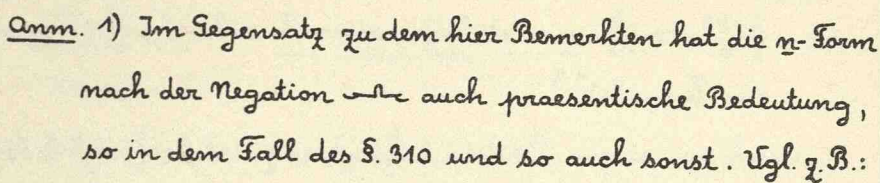 Anm. 1) Im Gegensatz zu dem hier Bemerkten hat die n-Form
nach der Negation 𓂜 auch praesentische Bedeutung,
so in dem Fall des §. 310 und so auch sonst. Vgl. z.B.: